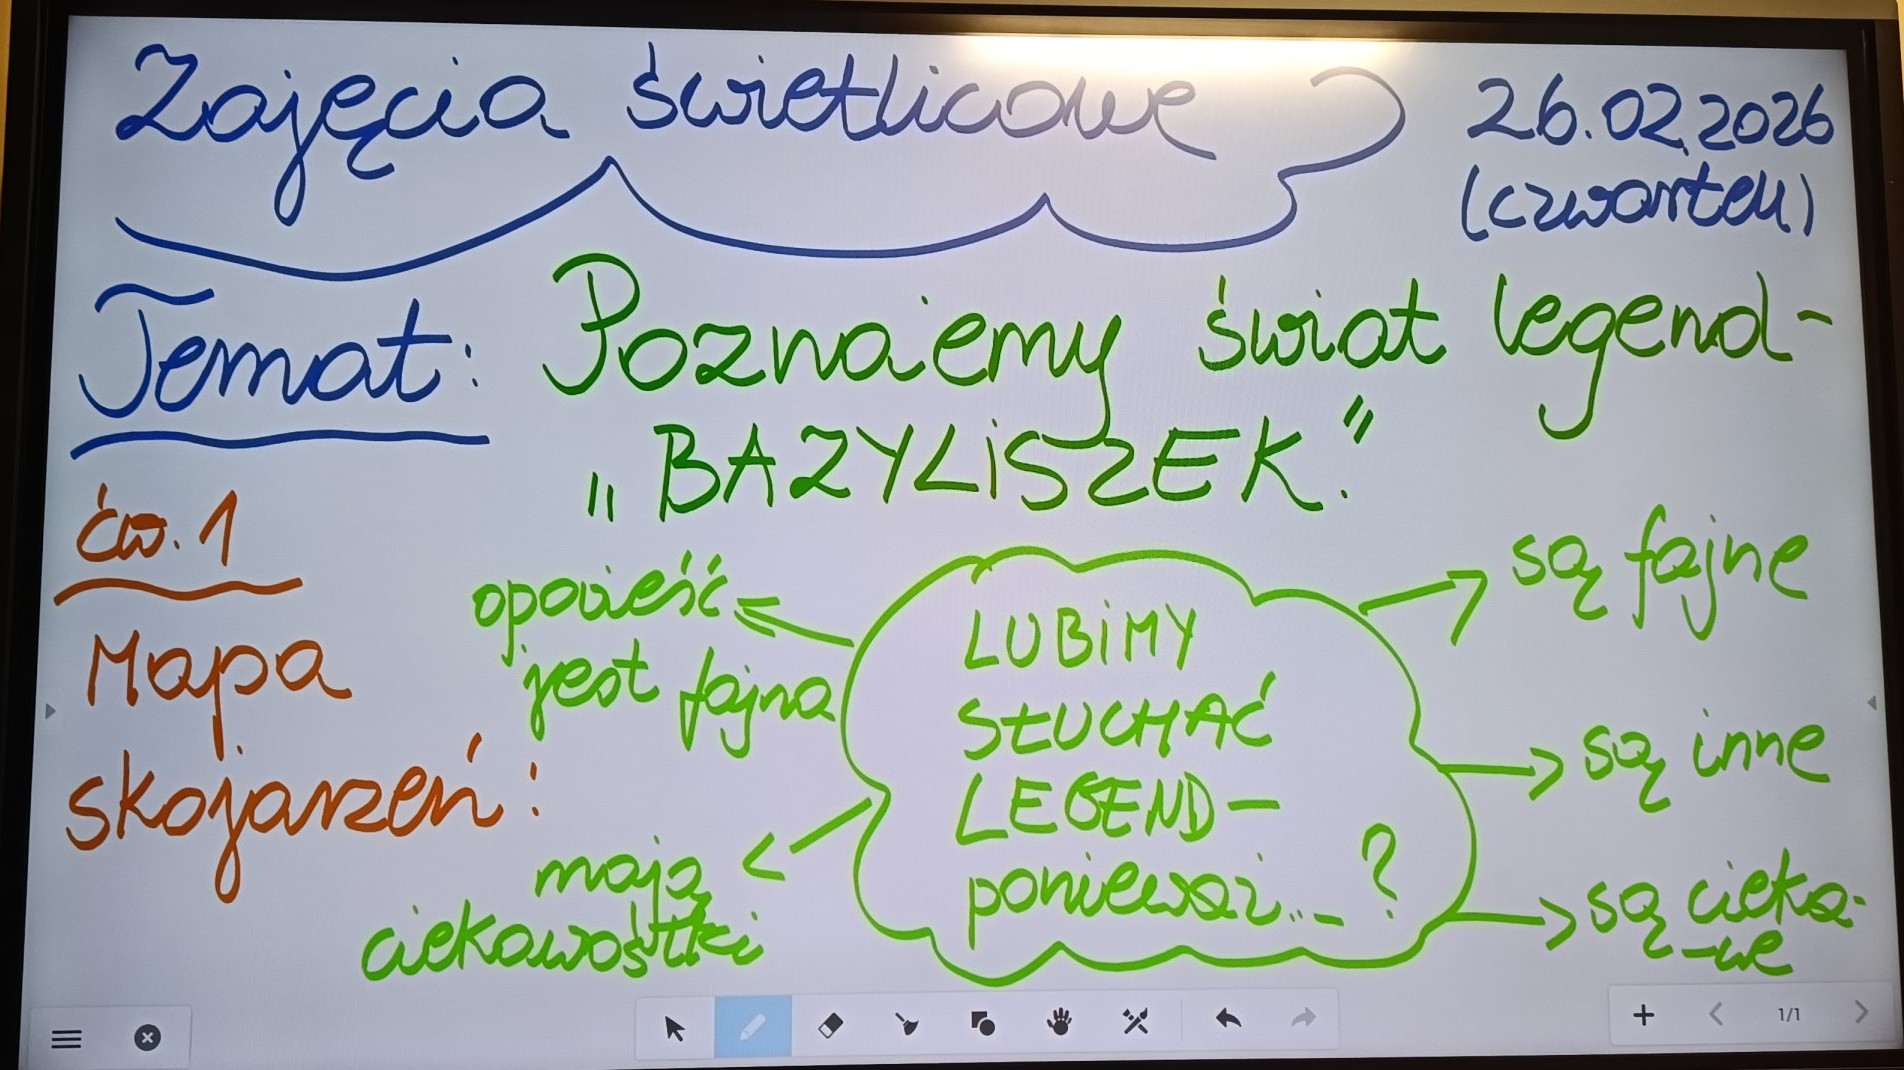 Zajęcia świetlicowe
26.02.2026
(czwartek)
Temat: Poznajemy świat legend-
„BAZYLISZEK."
ćw. 1
Mapa
skojarzeń:
opowieść
jest fajna
mają
ciekawostki
LUBIMY
SŁUCHAĆ
LEGEND-
ponieważ...?
są fajne
są inne
są cieka-
-we
1/1